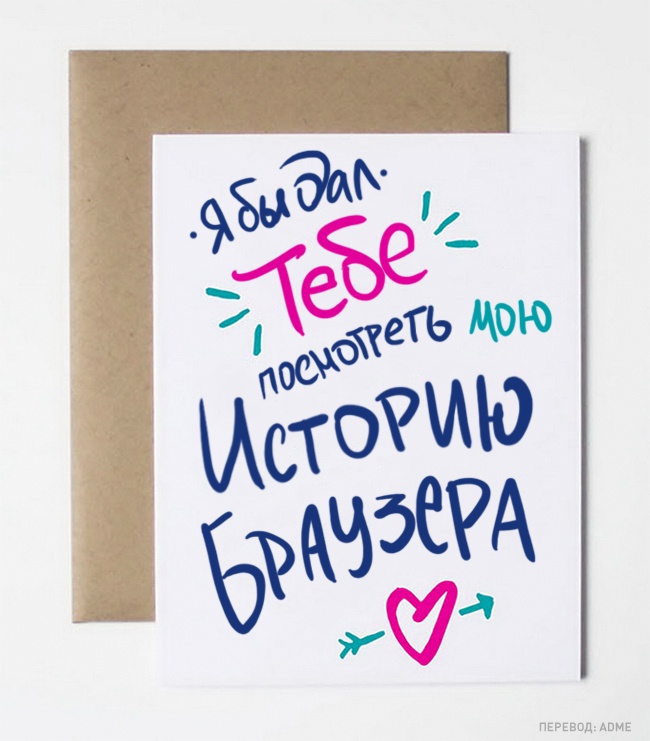 Я бы дал
Тебе
посмотреть мою
Историю
Браузера
ПЕРЕВОД: ADME